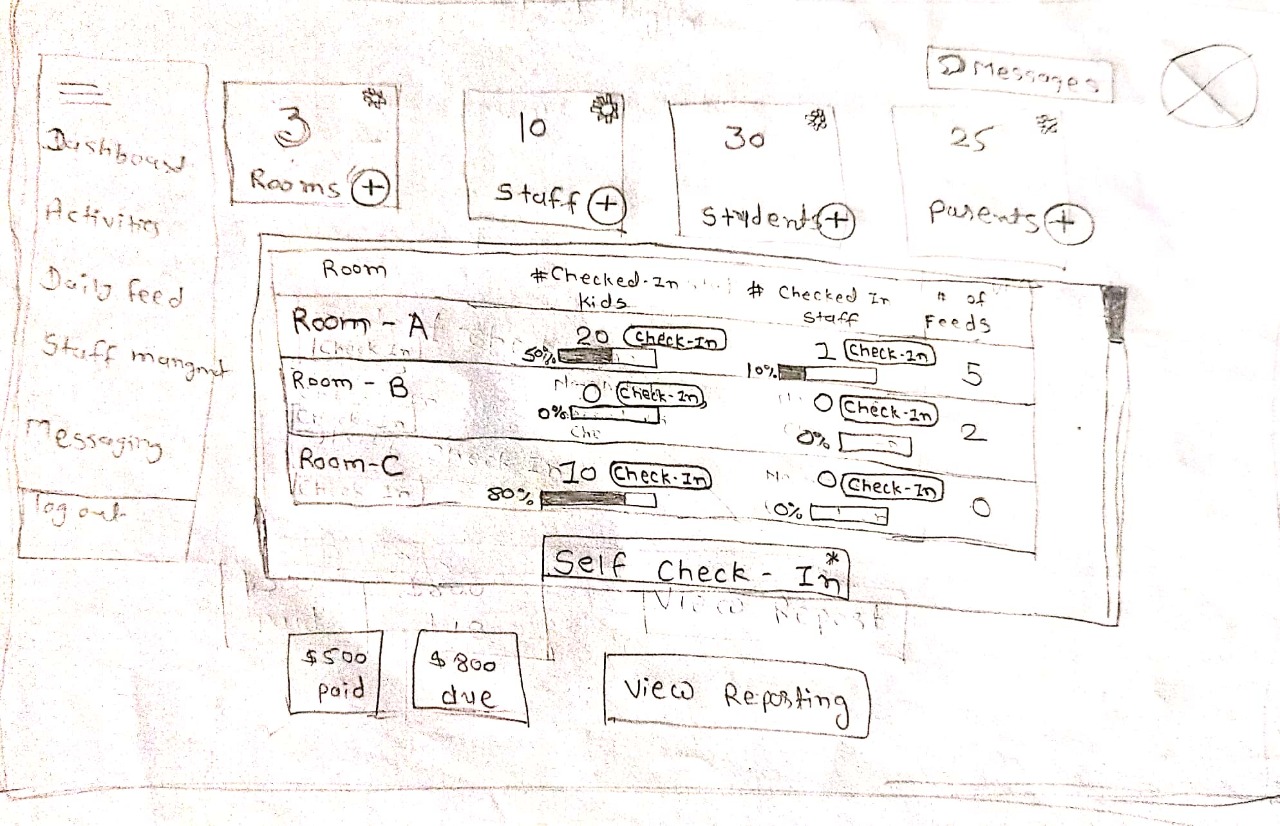 Messages
Dashboard
Activities
Daily feed
Staff mangmt
Messaging
log out
3
Rooms +
10
Staff +
30
Students +
25
Parents +
Room
#Checked-In
Kids
# Checked In
Staff
# of
Feeds
Room - A
20 Check-In
50%
1 Check-In
10%
5
Check In
Room - B
0 Check-In
0%
0 Check-In
0%
2
Check In
Room-C
10 Check-In
80%
0 Check-In
0%
0
Check In
Self Check - In *
View Report
$500
paid
$800
due
View Reporting